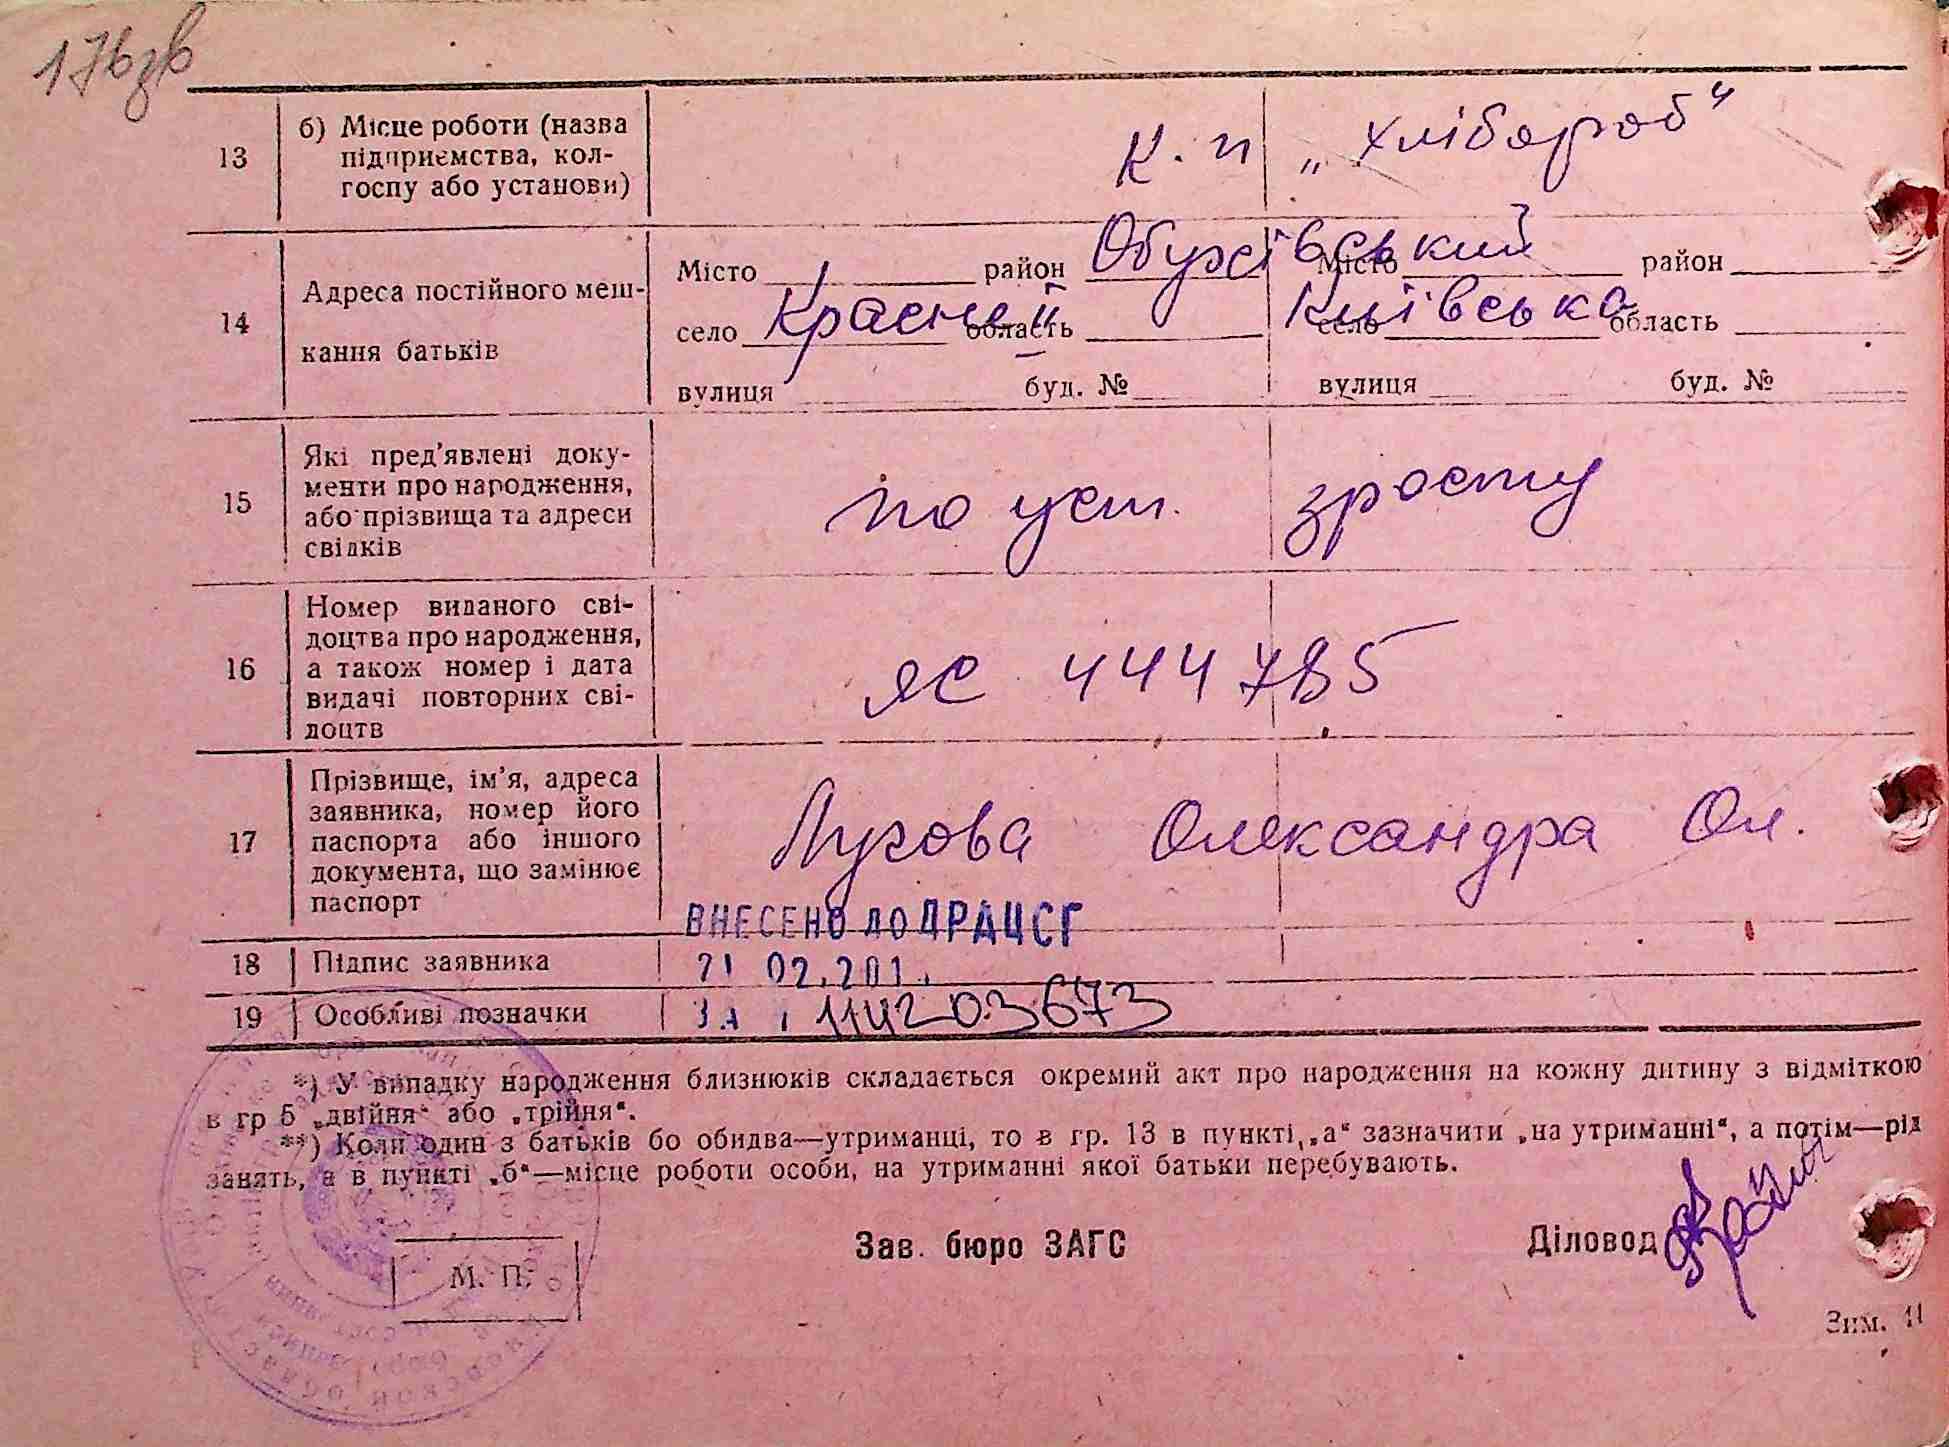 176зв
13 б) Місце роботи (назва підприємства, колгоспу або установи) К. п „Хлібороб"
14 Адреса постійного мешкання батьків
Місто район Обухівський Місто район
село Красне область Київська село область
вулиця буд. № вулиця буд. №
15 Які пред'явлені документи про народження, або прізвища та адреси свідків
по уст. зросту
16 Номер виданого свідоцтва про народження, а також номер і дата видачі повторних свідоцтв
ЯС 444785
17 Прізвище, ім'я, адреса заявника, номер його паспорта або іншого документа, що замінює паспорт
Лугова Олександра Ол.
ВНЕСЕНО ДО ДРАЦСГ
18 Підпис заявника 21 02.201
19 Особливі позначки ЗА 1142203673
*) У випадку народження близнюків складається окремий акт про народження на кожну дитину з відміткою
в гр 5 „двійня" або „трійня".
**) Коли один з батьків бо обидва—утриманці, то в гр. 13 в пункті „а" зазначити „на утриманні", а потім—рід
занять, а в пункті „б"—місце роботи особи, на утриманні якої батьки перебувають.
Зав. бюро ЗАГС Діловод
М. П.
Зим. 11